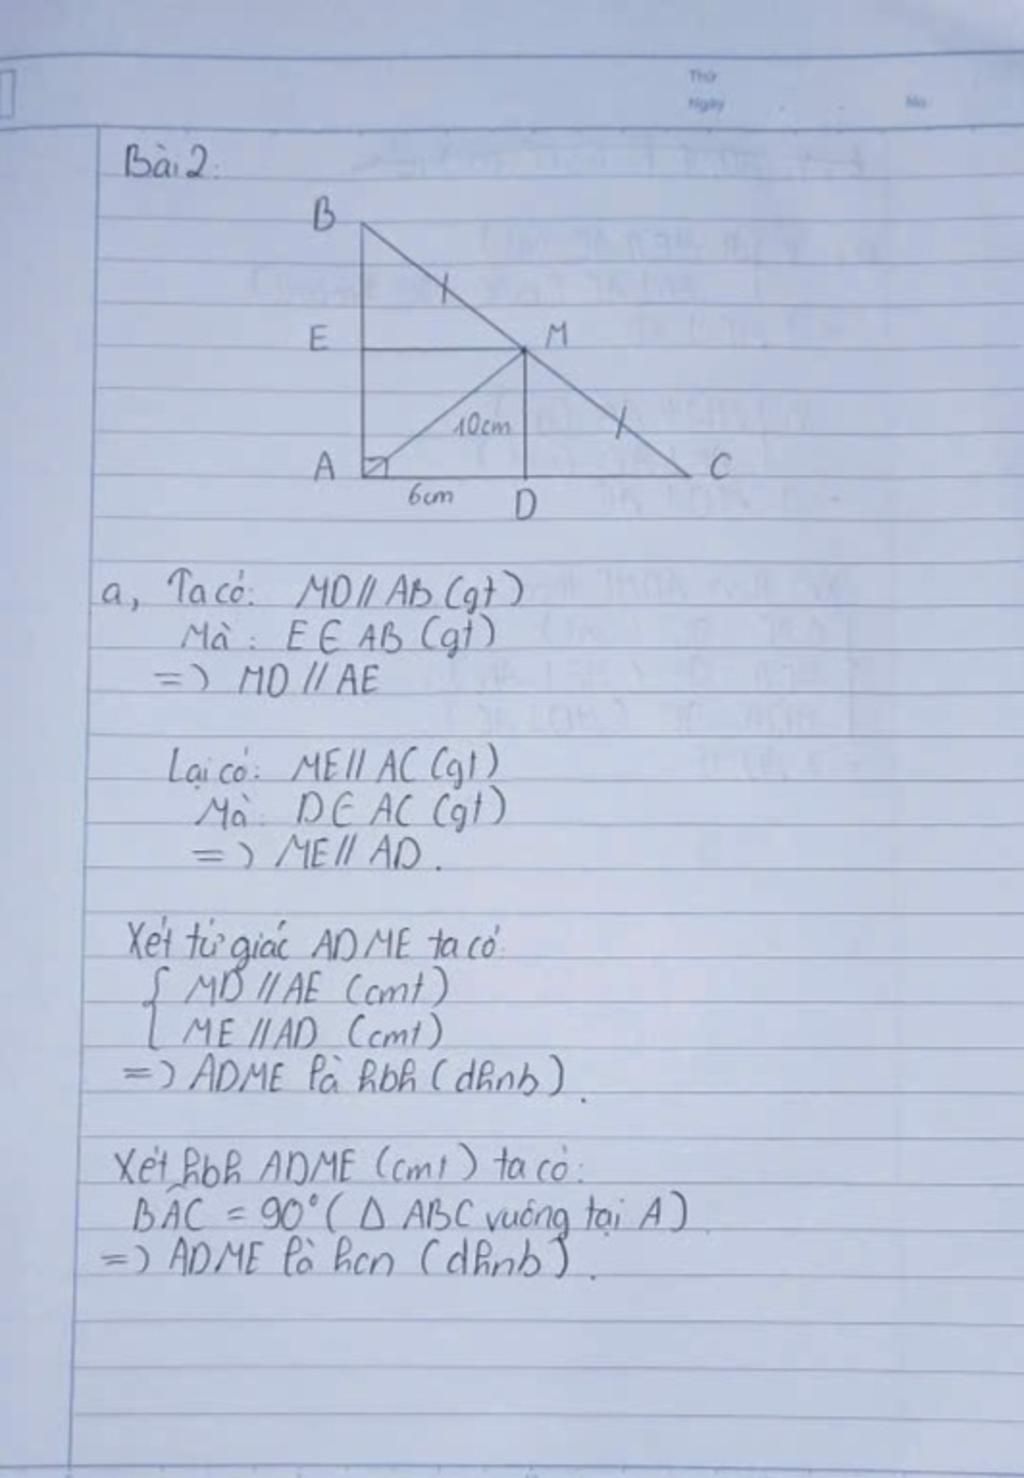 Thứ
Ngày
No.
Bài 2:
B
E
M
10cm
A
C
6cm
D
a, Ta có: MD // AB (gt)
Mà: E ∈ AB (gt)
=> MD // AE
Lại có: ME // AC (gt)
Mà: D ∈ AC (gt)
=> ME // AD.
Xét tứ giác ADME ta có:
{ MD // AE (cmt)
ME // AD (cmt)
=> ADME là hbh (dhnb).
Xét hbh ADME (cmt) ta có:
BÂC = 90° (Δ ABC vuông tại A)
=> ADME là hcn (dhnb).